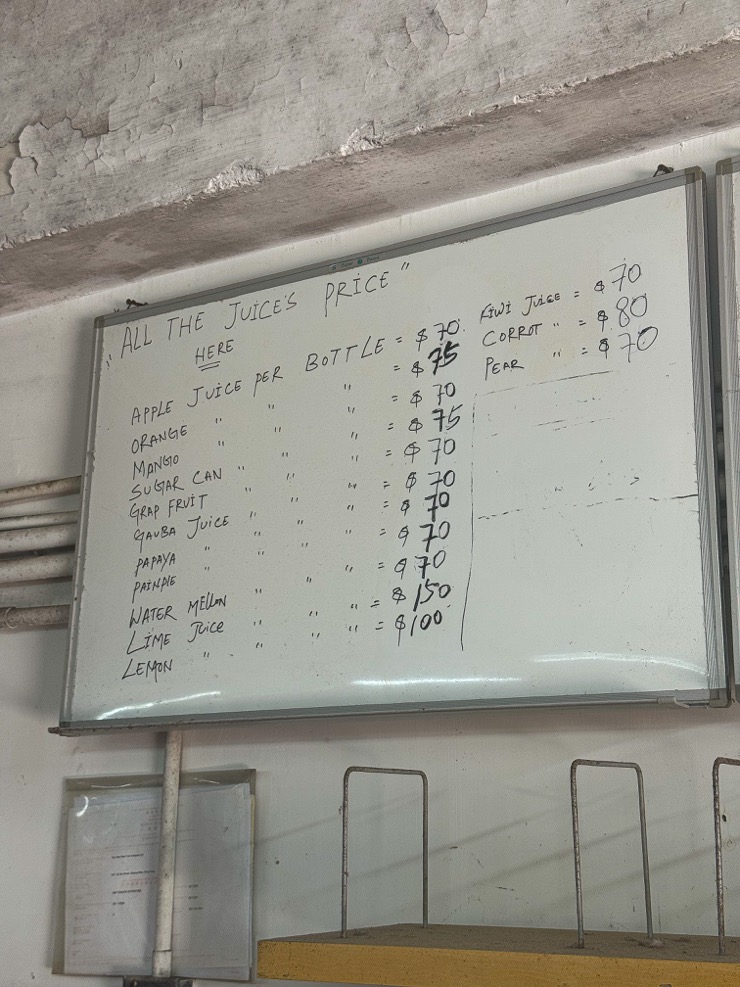 "ALL THE JUICE'S PRICE"
HERE
APPLE JUICE PER BOTTLE = $70
ORANGE " " " = $75
MANGO " " " = $70
SUGAR CAN " " " = $75
GRAP FRUIT " " " = $70
GAUBA JUICE " " " = $70
PAPAYA " " " = $70
PAINPLE " " " = $70
WATER MELLON " " " = $70
LIME JUICE " " " = $150
LEMON " " " " = $100
KIWI JUICE = $70
CORROT " = $80
PEAR " = $70